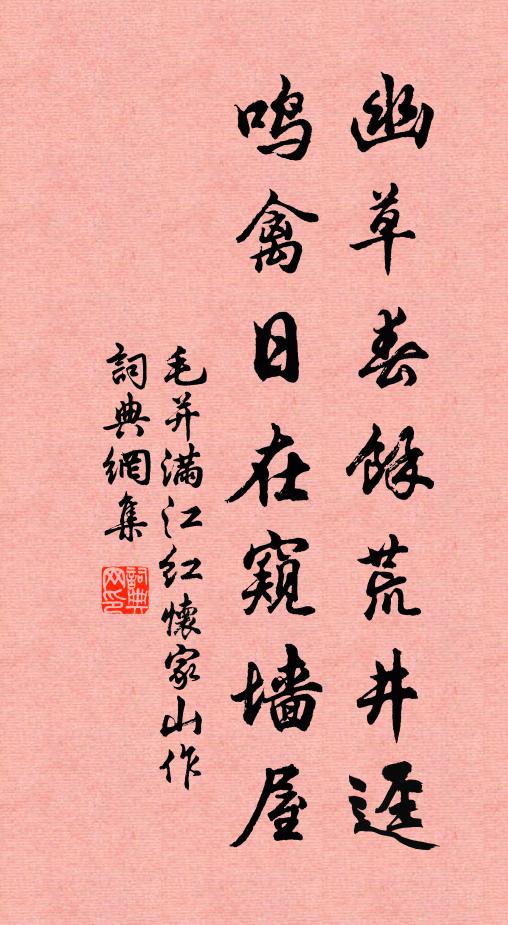 幽草春餘荒井逕
鸣禽日在窥墙屋
毛并满江红懷家山作
詞典網集
詞典网印